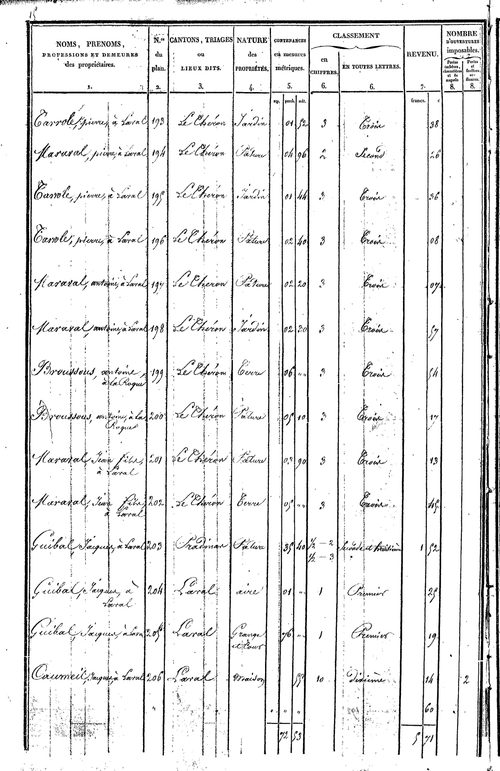 NOMS, PRENOMS, PROFESSIONS ET DEMEURES des propriétaires.
N.os du plan.
CANTONS, TRIAGES ou LIEUX DITS.
NATURE des PROPRIÉTÉS.
CONTENANCES en mesures métriques.
CLASSEMENT
en CHIFFRES.
EN TOUTES LETTRES.
REVENU.
NOMBRE D'OUVERTURES imposables.
1. 2. 3. 4. 5. 6. 6. 7. 8. 8.
francs. c
Carrolé, pierre, à Laral 193 Le Cheron Jardin 01 52 3 Trois 38
Maraval, pierre, à Laral 194 Le Cheron Pature 04 96 2 Second 26
Carrolé, pierre, à Laral 195 Le Cheron Jardin 01 44 3 Trois 36
Carrolé, pierre, à Laral 196 Le Cheron Pature 02 40 3 Trois 08
Maraval, antoine, à Laral 197 Le Cheron Pature 02 20 3 Trois 07
Maraval, antoine, à Laral 198 Le Cheron Jardin 02 20 3 Trois 57
Broussous, antoine, à la Roque 199 Le Cheron Terre 06 " 3 Trois 54
Broussous, antoine, à la Roque 200 Le Cheron Pature 05 10 3 Trois 17
Maraval Jean fils, à Laral 201 Le Cheron Pature 03 90 3 Trois 13
Maraval, Jean fils, à Laral 202 Le Cheron Terre 05 " 3 Trois 45
Guibal, Jacques, à Laral 203 Pature 35 40 1/2 - 2 1/2 - 3 1 52
Guibal, Jacques, à Laral 204 Laral aire 01 " 1 Premier 25
Guibal, Jacques, à Laral 205 Laral Grange et cour 76 " 1 Premier 19
Caumeil, Jacques, à Laral 206 Laral maison 55 10 dixieme 14 2
60
72 53 5 71